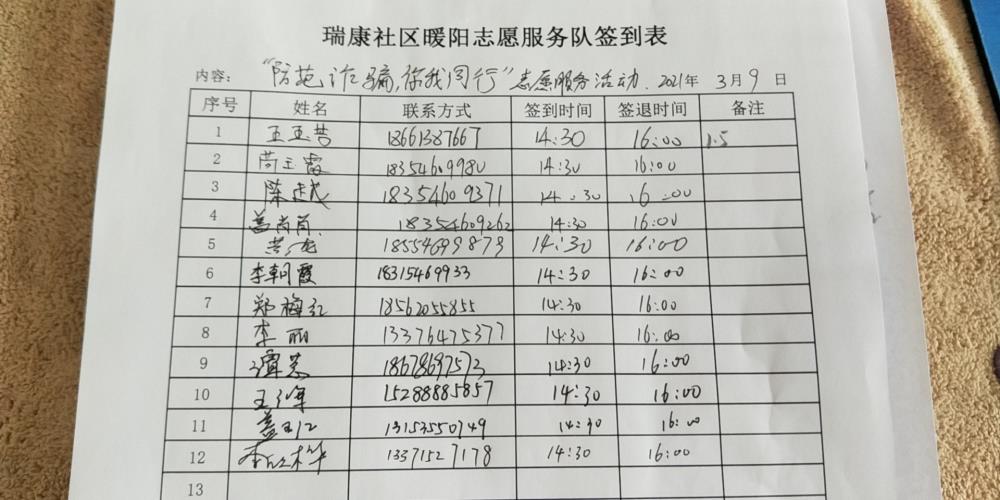 瑞康社区暖阳志愿服务队签到表
内容: "防范诈骗,你我同行"志愿服务活动. 2021年 3月9日
序号 姓名 联系方式 签到时间 签退时间 备注
1 18661387667 14:30 16:00 1.5
2 14:30 16:00
3 18354609371 14:30 16:00
4 18354609262 14:30 16:00
5 18554699879 14:30 16:00
6 李朝霞 18315469933 14:30 16:00
7 郑梅红 18562055855 14:30 16:00
8 李丽 13376475377 14:30 16:00
9 18678697573 14:30 16:00
10 15288885857 14:30 16:00
11 14:30 16:00
12 13371527178 14:30 16:00
13